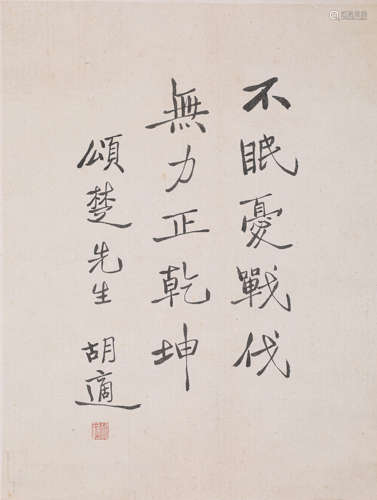 不眠憂戰伐
無力正乾坤
頌楚先生 胡適